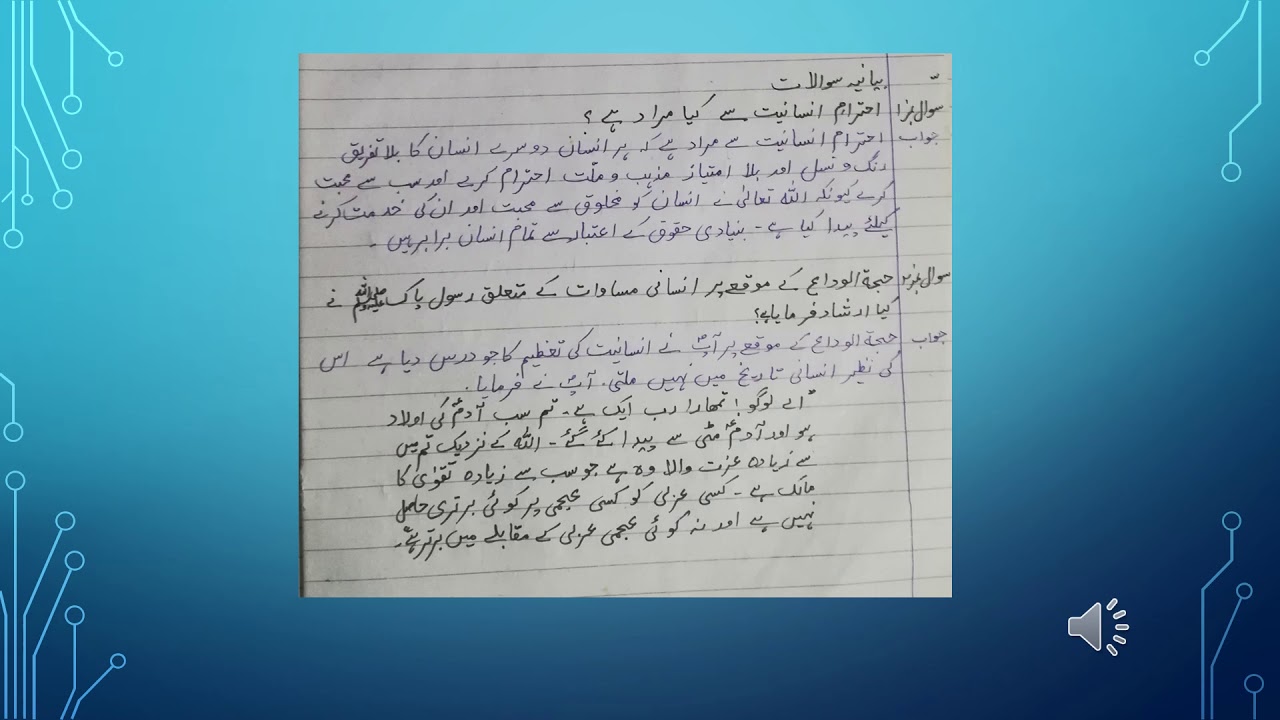 بیانیہ سوالات
سوال نمبر ۱ احترامِ انسانیت سے کیا مراد ہے؟
جواب احترامِ انسانیت سے مراد ہے کہ ہر انسان دوسرے انسان کا بلا تفریق
رنگ و نسل اور بلا امتیاز مذہب و ملّت احترام کرے اور سب سے محبت
کرے کیونکہ اللہ تعالیٰ نے انسان کو مخلوق سے محبت اور ان کی خدمت کرنے
کیلئے پیدا کیا ہے۔ بنیادی حقوق کے اعتبار سے تمام انسان برابر ہیں۔
سوال نمبر ۲ حجۃ الوداع کے موقعے پر انسانی مساوات کے متعلق رسول پاک ﷺ نے
کیا ارشاد فرمایا ہے؟
جواب حجۃ الوداع کے موقع پر آپؐ نے انسانیت کی تعظیم کا جو درس دیا ہے اس
کی نظیر انسانی تاریخ میں نہیں ملتی۔ آپؐ نے فرمایا۔
"اے لوگو! تمھارا رب ایک ہے۔ تم سب آدمؑ کی اولاد
ہو اور آدمؑ مٹی سے پیدا کئے گئے۔ اللہ کے نزدیک تم میں
سے زیادہ عزت والا وہ ہے جو سب سے زیادہ تقویٰ کا
مالک ہے۔ کسی عربی کو کسی عجمی پر کوئی برتری حاصل
نہیں ہے اور نہ کوئی عجمی عربی کے مقابلے میں برتر ہے"۔